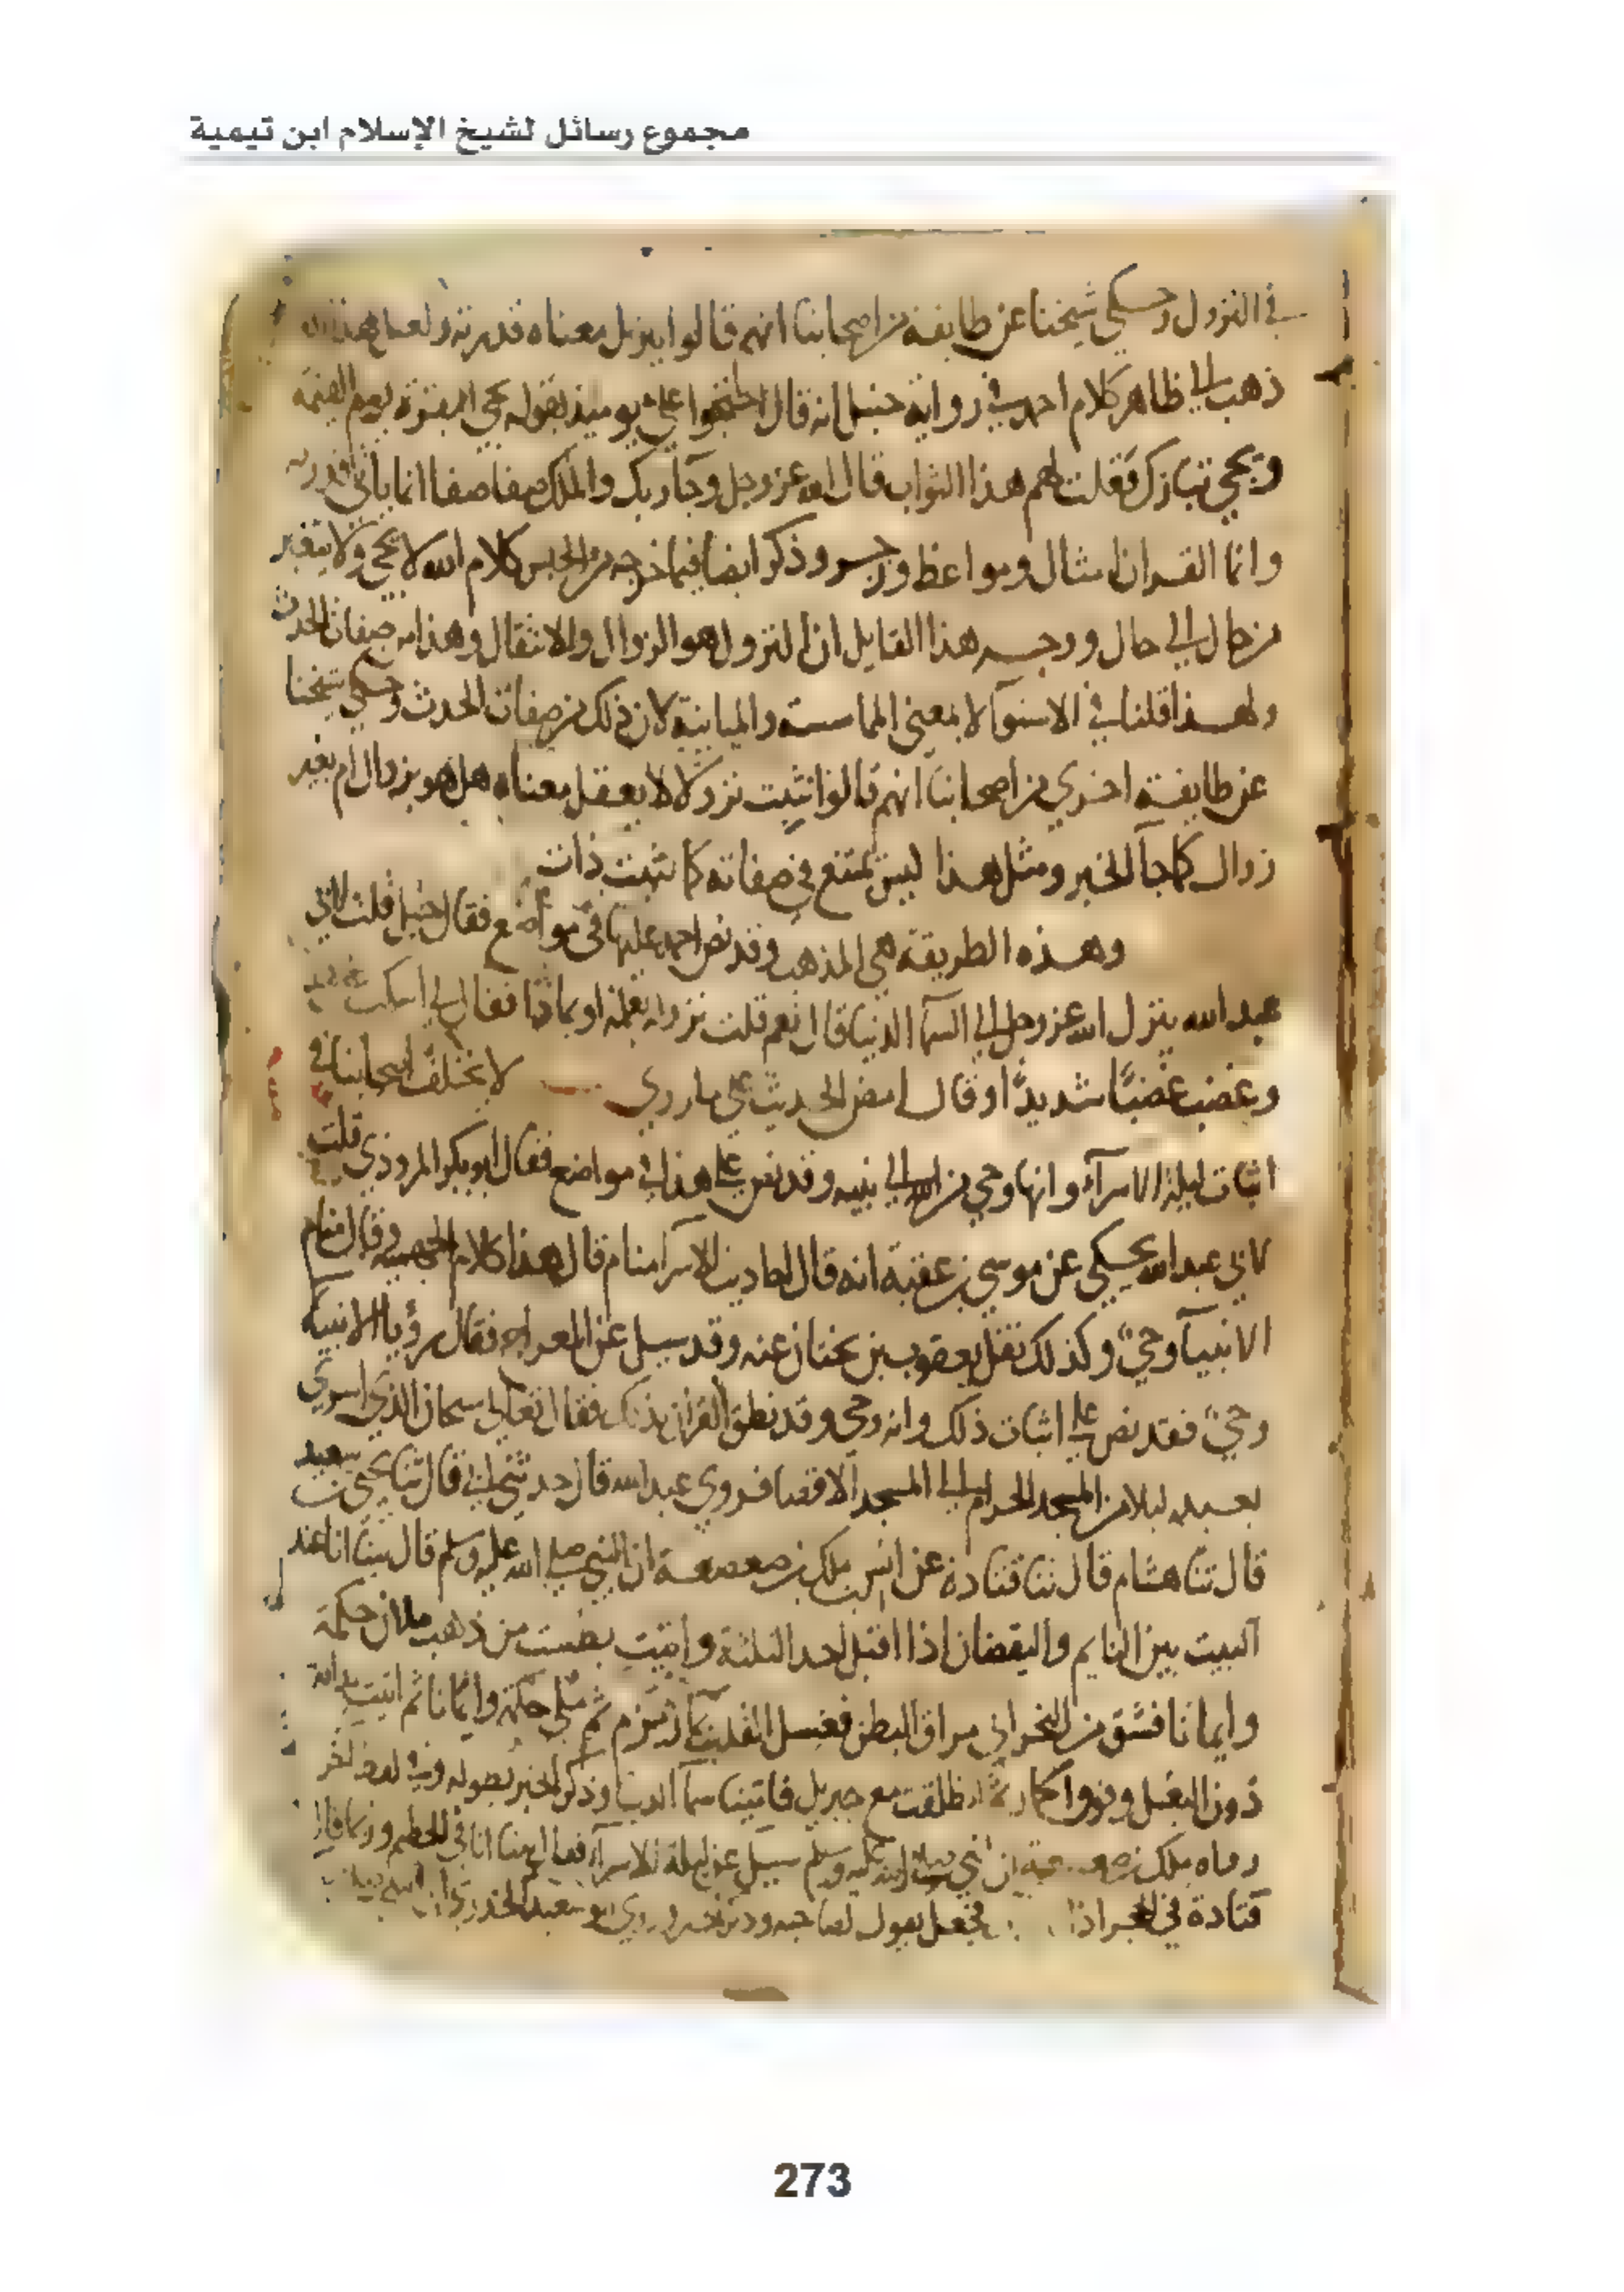 مجموع رسائل لشيخ الإسلام ابن تيمية
في النزول وحكى شيخنا عن طايفة من اصحابنا انهم قالوا ينزل معناه قدرته ولعل هذا
ذهب الى ظاهر كلام احمد في رواية حنبل انه قال احتجوا على يوميذ بقوله تجي البقرة يوم القيمة
وتجي تبارك فقلت لهم هذا الثواب قال الله عز وجل وجآ ربك والملك صفا صفا انما ياتي قدرته
وانما القران امثال ومواعظ وزجر وذكر ايضا فيما خرجه في الحبس كلام الله لا يجي ولا يتغير
من حال الى حال ووجه هذا القايل ان النزول هو الزوال والانتقال وهذا من صفات الحدث
ولهذا قلنا في الاستوآ لا بمعنى المماسة والمباينة لان ذلك من صفات الحدث وحكى شيخنا
عن طايفة اخرى من اصحابنا انهم قالوا نثبت نزولا لا يعقل معناه هل هو بزوال ام بغير
زوال كما جآ الخبر ومثل هذا ليس يمتنع في صفاته كما نثبت ذات
وهذه الطريقة هي المذهب وقد نص احمد عليها في مواضع فقال حنبل قلت لابي
عبد الله ينزل الله عز وجل الى السمآ الدنيا قال نعم قلت نزوله بعلمه او بماذا فقال لي اسكت
وغضب غضبًا شديدًا وقال امض الحديث على ما روي لا يختلف اصحابنا في
اثبات ليلة الاسرآء وانها وحي من الله الى نبيه وقد نص على هذا في مواضع فقال ابو بكر المروذي قلت
لابي عبد الله يحكى عن موسى بن عقبة انه قال احاديث الاسرا منام قال هذا كلام الجهمية وقال منام
الانبيآ وحيٌ وكذلك نقل يعقوب بن بختان عنه وقد سيل عن المعراج فقال رؤيا الانبيآ
وحيٌ فقد نص على اثبات ذلك وانه وحي وقد نطق القران بذلك فقال تعالى سبحان الذي اسرى
بعبده ليلا من المسجد الحرام الى المسجد الاقصا فروى عبد الله قال حدثني ابي قال ثنا يحيى بن سعيد
قال ثنا هشام قال ثنا قتادة عن انس بن ملك بن صعصعة ان النبي صلى الله عليه وسلم قال بينا انا عند
البيت بين النايم واليقضان اذا اقبل احد الثلثة واتيت بطست من ذهب ملان حكمة
وايمانا فشق من النحر الى مراق البطن فغسل القلب بمآ زمزم ثم ملي حكمة وايمانا ثم اتيت بدابة
دون البغل وفوق الحمار ثم انطلقت مع جبريل فاتينا سمآ الدنيا وذكر الخبر بطوله وفي لفظ اخر
رواه ملك بن صعصعة ان النبي صلى الله عليه وسلم سيل عن ليلة الاسرآء فقال بينا انا في الحطيم وربما قال
قتادة في الحجر اذ فجعل يقول لصاحبه وروى ابو سعيد الخدري ان
273